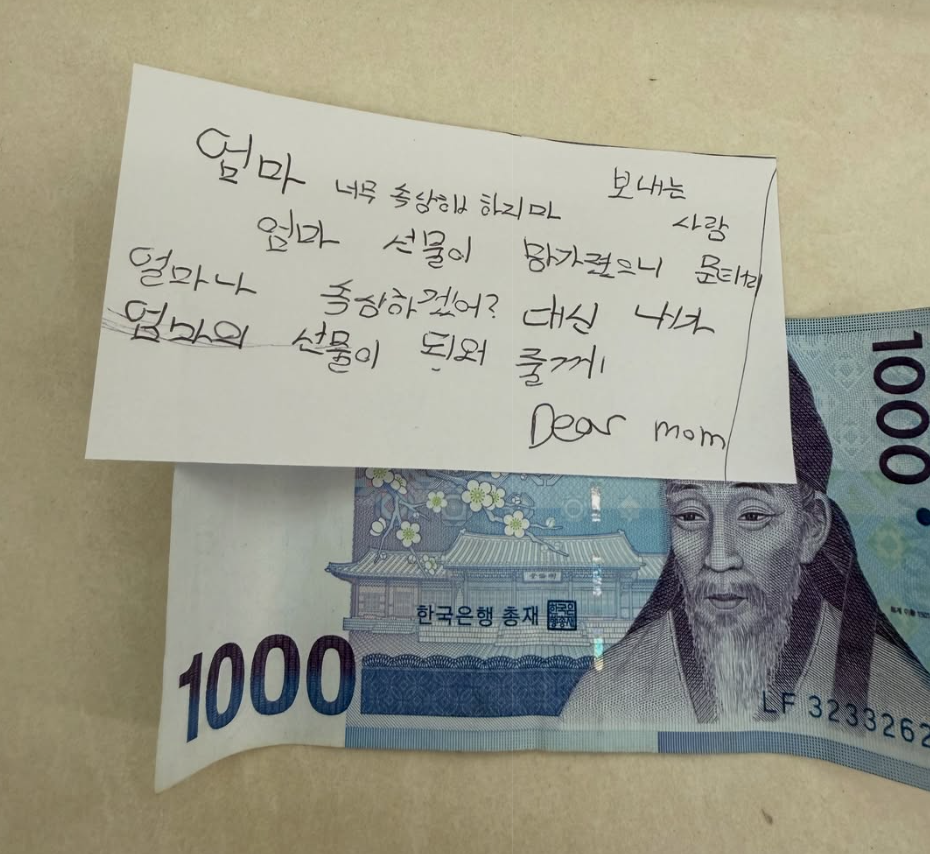 엄마 너무 속상해 하지마
보내는
사람
엄마 선물이 망가졌으니
얼마나 속상하겠어? 대신 내가
엄마의 선물이 되워 줄께!
Dear mom
1000
한국은행 총재
1000
LF 3233262